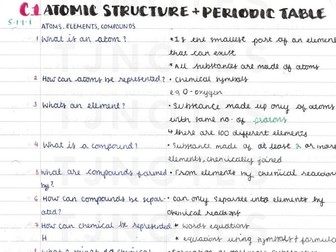 C.1 ATOMIC STRUCTURE + PERIODIC TABLE
5.1.1.1 ATOMS, ELEMENTS, COMPOUNDS
1 What is an atom? • Is the smallest part of an element
that can exist
• All substances are made of atoms
2 How can atoms be represented? • Chemical symbols
e.g. O - oxygen
3 Whats an element? • Substance made up only of atoms
with same no. of protons
• there are 100 different elements
4 What is a compound? • Substance made of at least 2 or more
elements, chemically joined
5 What are compounds formed • From elements by chemical reactions
by?
6 How can compounds be separ- • Can only separate into elements by
ated? chemical reactions
7 How can chemical be represented? • words equations
• equations using symbols + form